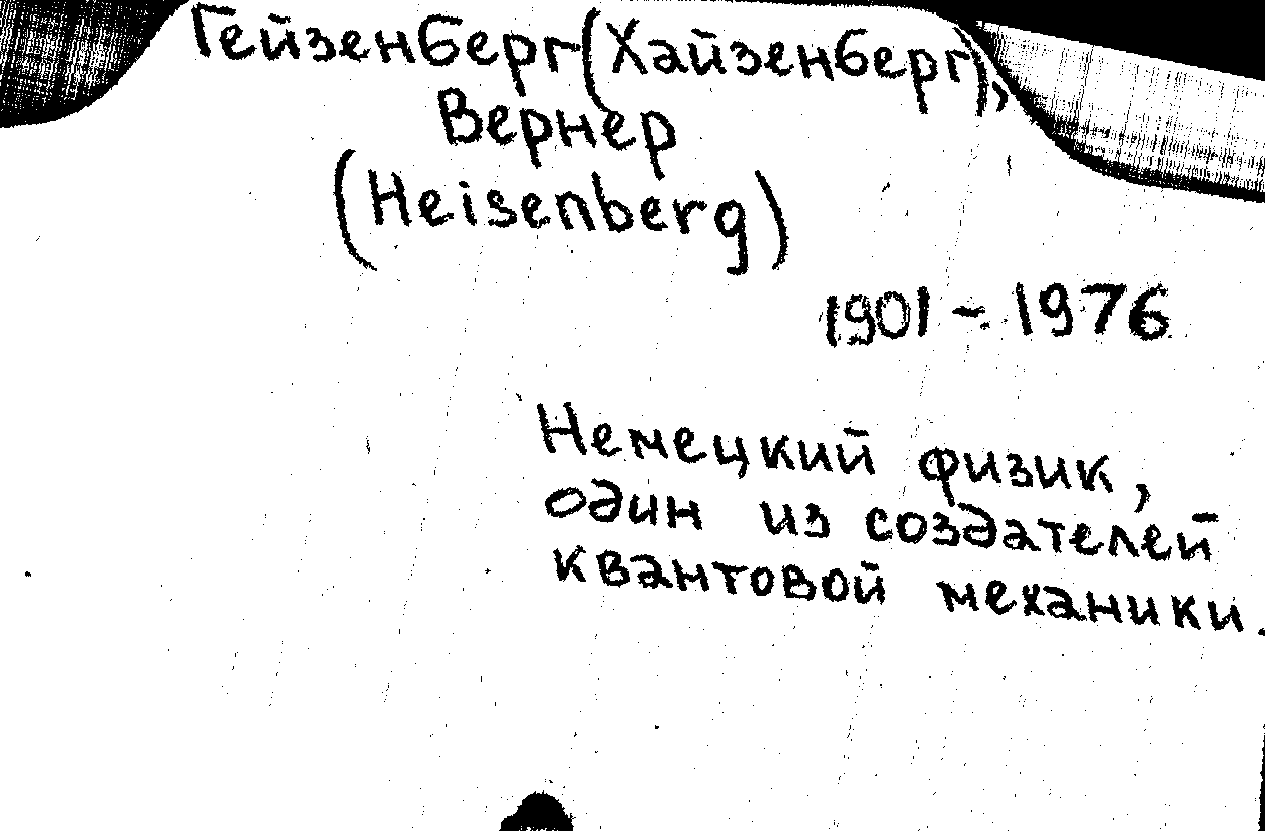 Гейзенберг (Хайзенберг),
Вернер
(Heisenberg)
1901 - 1976
Немецкий физик,
один из создателей
квантовой механики.